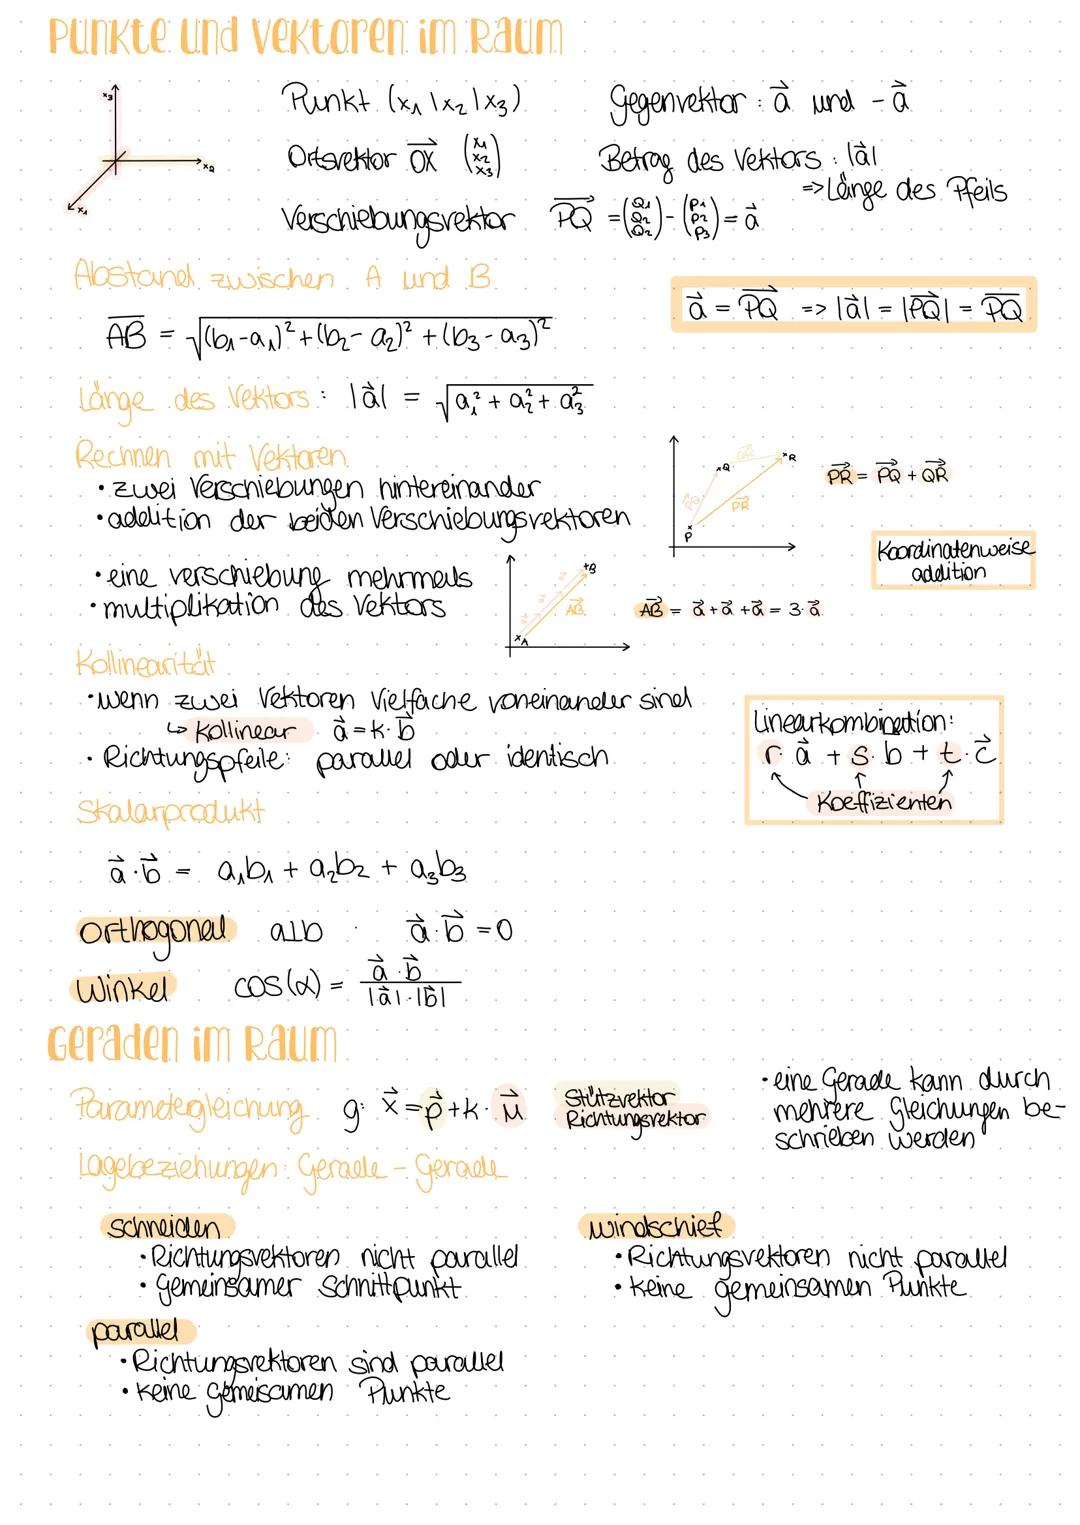 Punkte und Vektoren im Raum
x₃
x₂
x₁
Punkt (x₁ | x₂ | x₃)
Gegenvektor: a⃗ und -a⃗
Ortsvektor OX⃗ (x₁ x₂ x₃)
Betrag des Vektors: |a⃗|
=> Länge des Pfeils
Verschiebungsvektor PQ⃗ = (Q₁ Q₂ Q₂) - (P₁ P₂ P₃) = a⃗
Abstand zwischen A und B
a⃗ = PQ⃗ => |a⃗| = |PQ⃗| = P̅Q̅
A̅B̅ = √(b₁-a₁)² + (b₂-a₂)² + (b₃-a₃)²
Länge des Vektors: |a⃗| = √a₁² + a₂² + a₃²
Rechnen mit Vektoren
• zwei Verschiebungen hintereinander
• addition der beiden Verschiebungsvektoren
P
Q
R
PQ⃗
QR⃗
PR⃗
PR⃗ = PQ⃗ + QR⃗
Koordinatenweise
addition
• eine verschiebung mehrmals
• multiplikation des Vektors
A
B
a⃗
a⃗
a⃗
AB⃗
AB⃗ = a⃗ + a⃗ + a⃗ = 3·a⃗
Kollinearität
• wenn zwei Vektoren Vielfache voneinander sind
↳ Kollinear a⃗ = k·b⃗
• Richtungspfeile: parallel oder identisch
Linearkombination:
r·a⃗ + s·b + t·c⃗
Koeffizienten
Skalarprodukt
a⃗·b⃗ = a₁b₁ + a₂b₂ + a₃b₃
orthogonal a⊥b a⃗·b⃗ = 0
Winkel cos(α) = a⃗·b⃗ / |a⃗|·|b⃗|
Geraden im Raum
Parametergleichung g: x⃗ = p⃗ + k·u⃗
Stützvektor
Richtungsvektor
• eine Gerade kann durch
mehrere Gleichungen be-
schrieben werden
Lagebeziehungen: Gerade - Gerade
schneiden
• Richtungsvektoren nicht parallel
• gemeinsamer Schnittpunkt
windschief
• Richtungsvektoren nicht parallel
• keine gemeinsamen Punkte
parallel
• Richtungsvektoren sind parallel
• keine gemeisamen Punkte